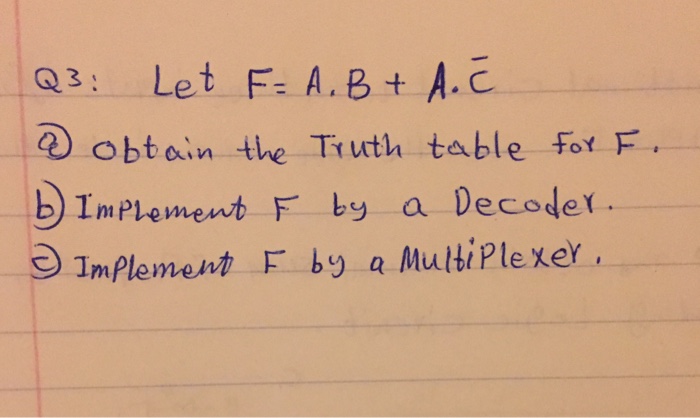 Q3: Let F = A.B + A.C̄
ⓐ obtain the Truth table for F.
b) Implement F by a Decoder.
ⓒ Implement F by a Multiplexer.